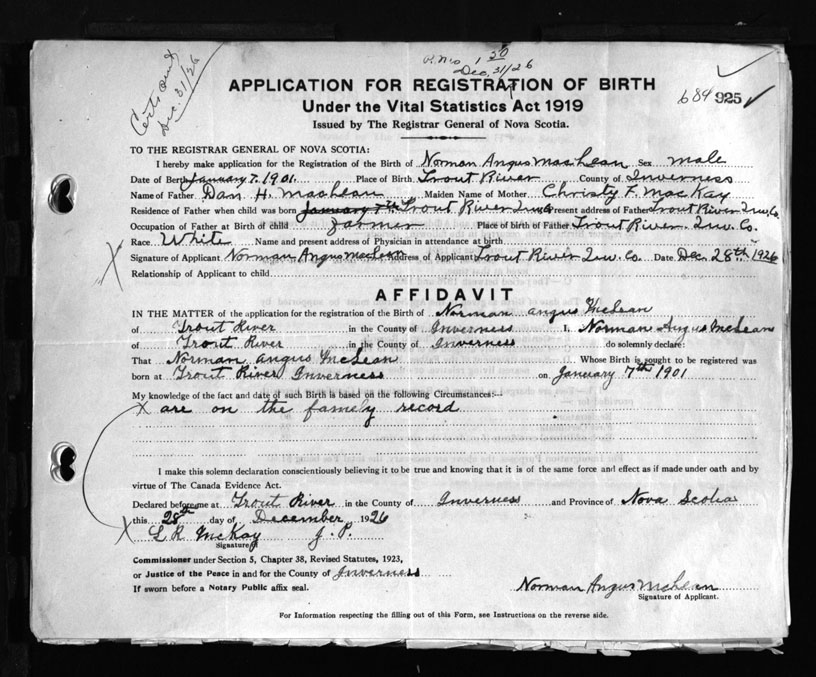 Dec. 31/26
Dec. 31/26
APPLICATION FOR REGISTRATION OF BIRTH
684 925
Under the Vital Statistics Act 1919
Issued by The Registrar General of Nova Scotia.
TO THE REGISTRAR GENERAL OF NOVA SCOTIA:
I hereby make application for the Registration of the Birth of Norman Angus MacLean Sex male
Date of Birth January 7. 1901. Place of Birth Trout River County of Inverness
Name of Father Dan H. MacLean Maiden Name of Mother Christy F. MacKay
Residence of Father when child was born January 7th Trout River Inv. Co Present address of Father Trout River Inv. Co.
Occupation of Father at Birth of child farmer Place of birth of Father Trout River. Inv. Co.
Race White Name and present address of Physician in attendance at birth
Signature of Applicant Norman Angus MacLean Address of Applicant Trout River Inv. Co. Date Dec. 28th 1926
Relationship of Applicant to child
AFFIDAVIT
IN THE MATTER of the application for the registration of the Birth of Norman angus McLean
of Trout River in the County of Inverness I, Norman Angus McLean
of Trout River in the County of Inverness do solemnly declare:
That Norman angus McLean Whose Birth is sought to be registered was
born at Trout River Inverness on January 7th 1901
My knowledge of the fact and date of such Birth is based on the following Circumstances:--
X are on the famely record
I make this solemn declaration conscientiously believing it to be true and knowing that it is of the same force and effect as if made under oath and by
virtue of The Canada Evidence Act.
Declared before me at Trout River in the County of Inverness and Province of Nova Scotia
this 28th day of December 1926
X L R McKay J. P.
Signature
Commissioner under Section 5, Chapter 38, Revised Statutes, 1923,
or Justice of the Peace in and for the County of Inverness
If sworn before a Notary Public affix seal.
Norman Angus McLean
Signature of Applicant.
For Information respecting the filling out of this Form, see Instructions on the reverse side.